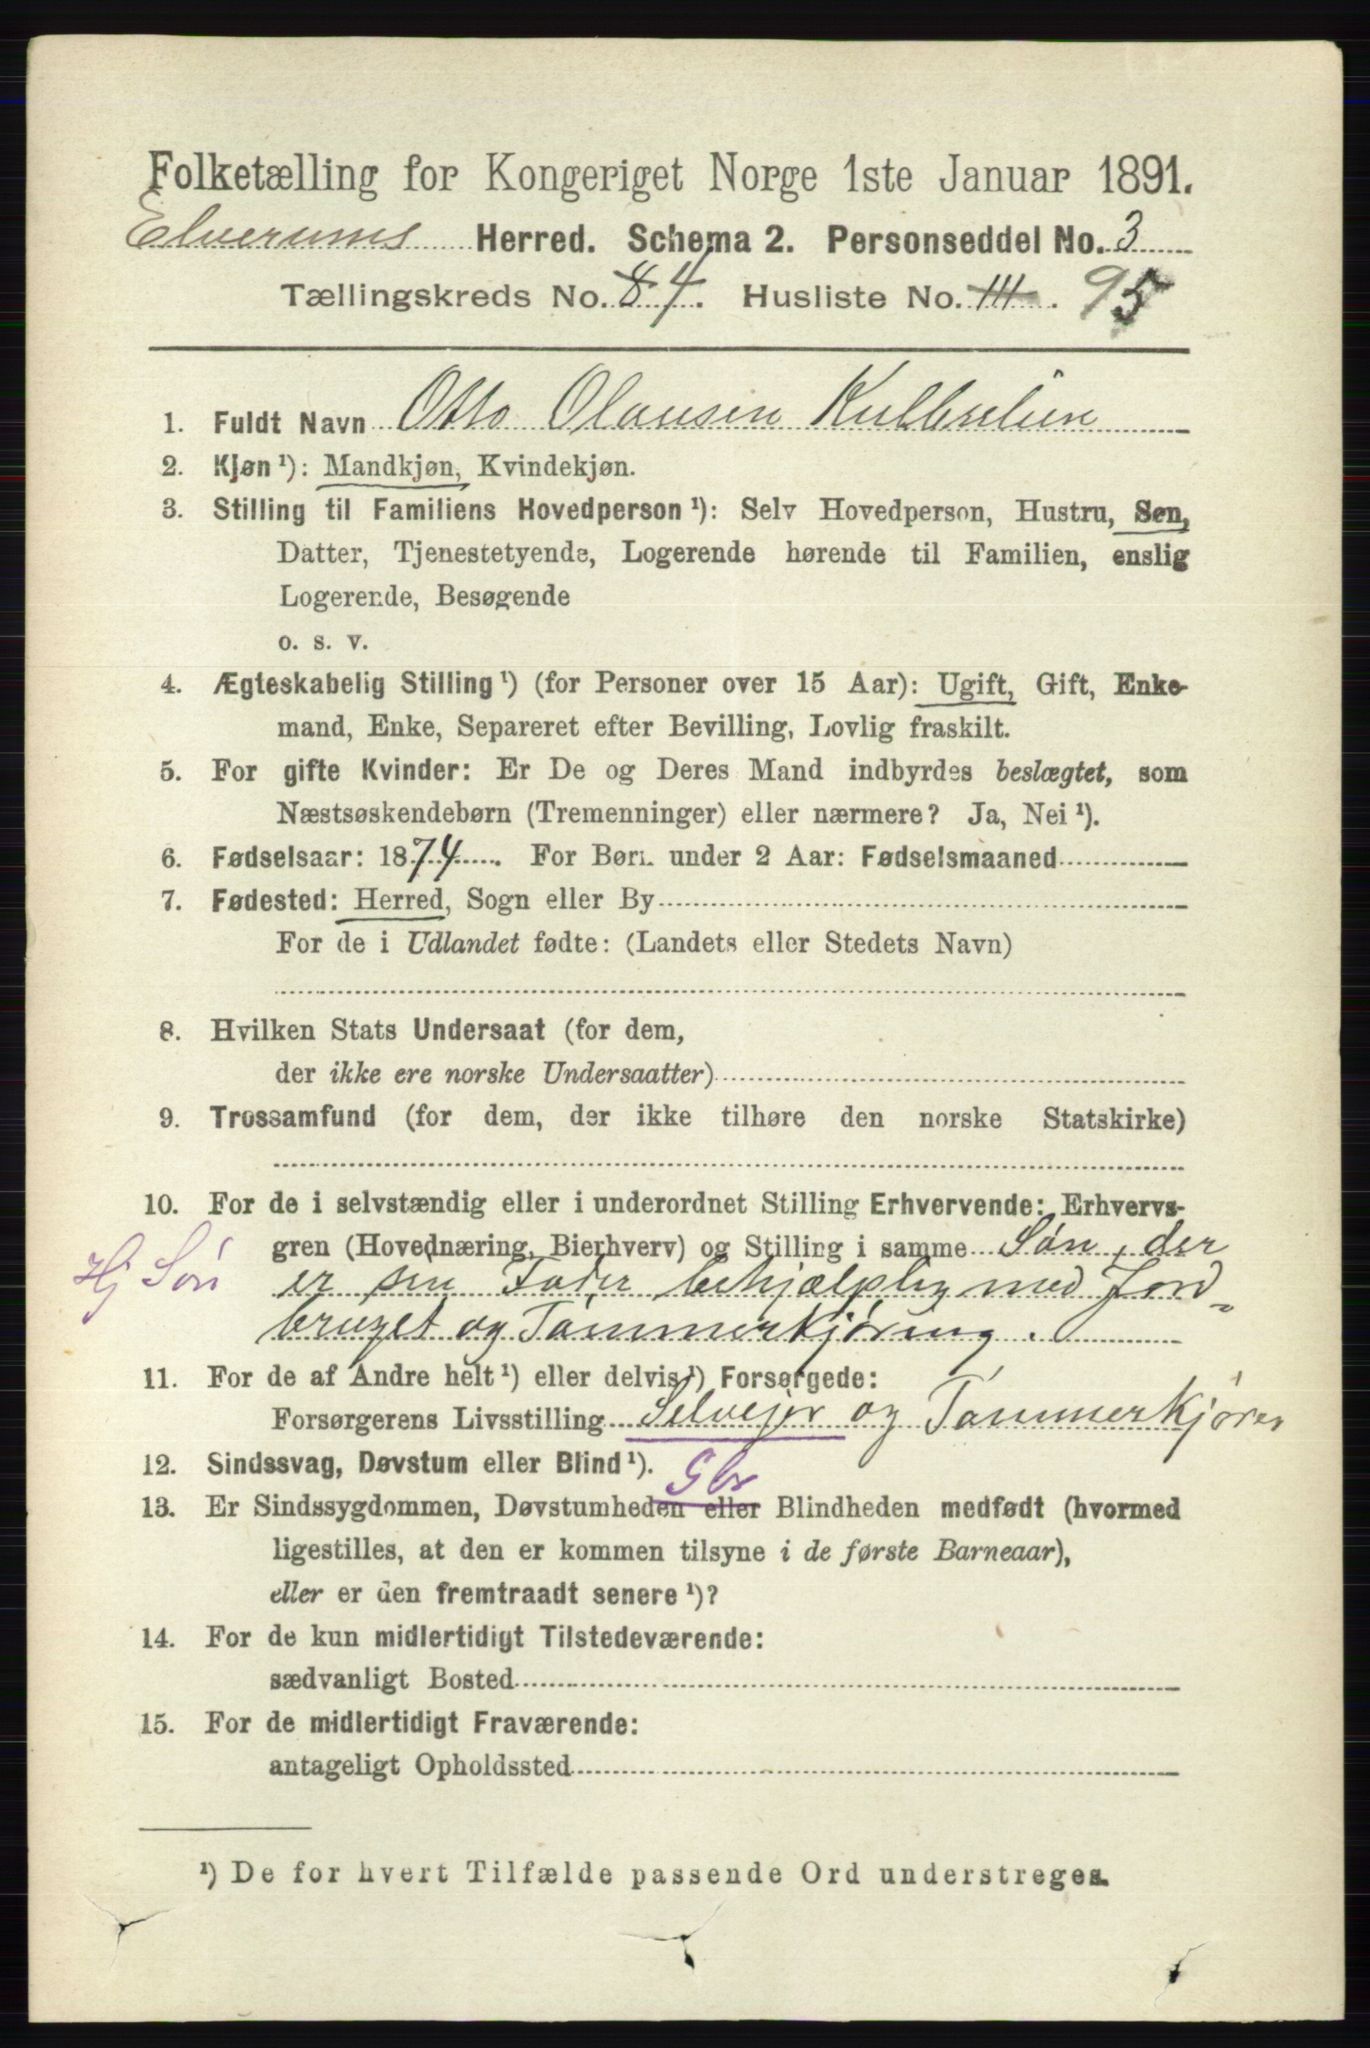 Folketælling for Kongeriget Norge 1ste Januar 1891.
Elverums Herred. Schema 2. Personseddel No. 3
Tællingskreds No. 8 4. Husliste No. 111. 95
1. Fuldt Navn Otto Olausen Kulbrelien
2. Kjøn ¹): Mandkjøn, Kvindekjøn.
3. Stilling til Familiens Hovedperson ¹): Selv Hovedperson, Hustru, Søn,
Datter, Tjenestetyende, Logerende hørende til Familien, enslig
Logerende, Besøgende
o. s. v.
4. Ægteskabelig Stilling ¹) (for Personer over 15 Aar): Ugift, Gift, Enke-
mand, Enke, Separeret efter Bevilling, Lovlig fraskilt.
5. For gifte Kvinder: Er De og Deres Mand indbyrdes beslægtet, som
Næstsøskendebørn (Tremenninger) eller nærmere? Ja, Nei ¹).
6. Fødselsaar: 1874. For Børn under 2 Aar: Fødselsmaaned
7. Fødested: Herred, Sogn eller By
For de i Udlandet fødte: (Landets eller Stedets Navn)
8. Hvilken Stats Undersaat (for dem,
der ikke ere norske Undersaatter)
9. Trossamfund (for dem, der ikke tilhøre den norske Statskirke)
10. For de i selvstændig eller i underordnet Stilling Erhvervende: Erhvervs-
gren (Hovednæring, Bierhverv) og Stilling i samme Søn, der
Hj Søn er sin Fader behjælpelig med Jord-
bruget og Tømmerkjøring.
11. For de af Andre helt ¹) eller delvis ¹) Forsørgede:
Forsørgerens Livsstilling Selvejer og Tømmerkjører
12. Sindssvag, Døvstum eller Blind ¹).
Gbr
13. Er Sindssygdommen, Døvstumheden eller Blindheden medfødt (hvormed
ligestilles, at den er kommen tilsyne i de første Barneaar),
eller er den fremtraadt senere ¹)?
14. For de kun midlertidigt Tilstedeværende:
sædvanligt Bosted
15. For de midlertidigt Fraværende:
antageligt Opholdssted
¹) De for hvert Tilfælde passende Ord understreges.